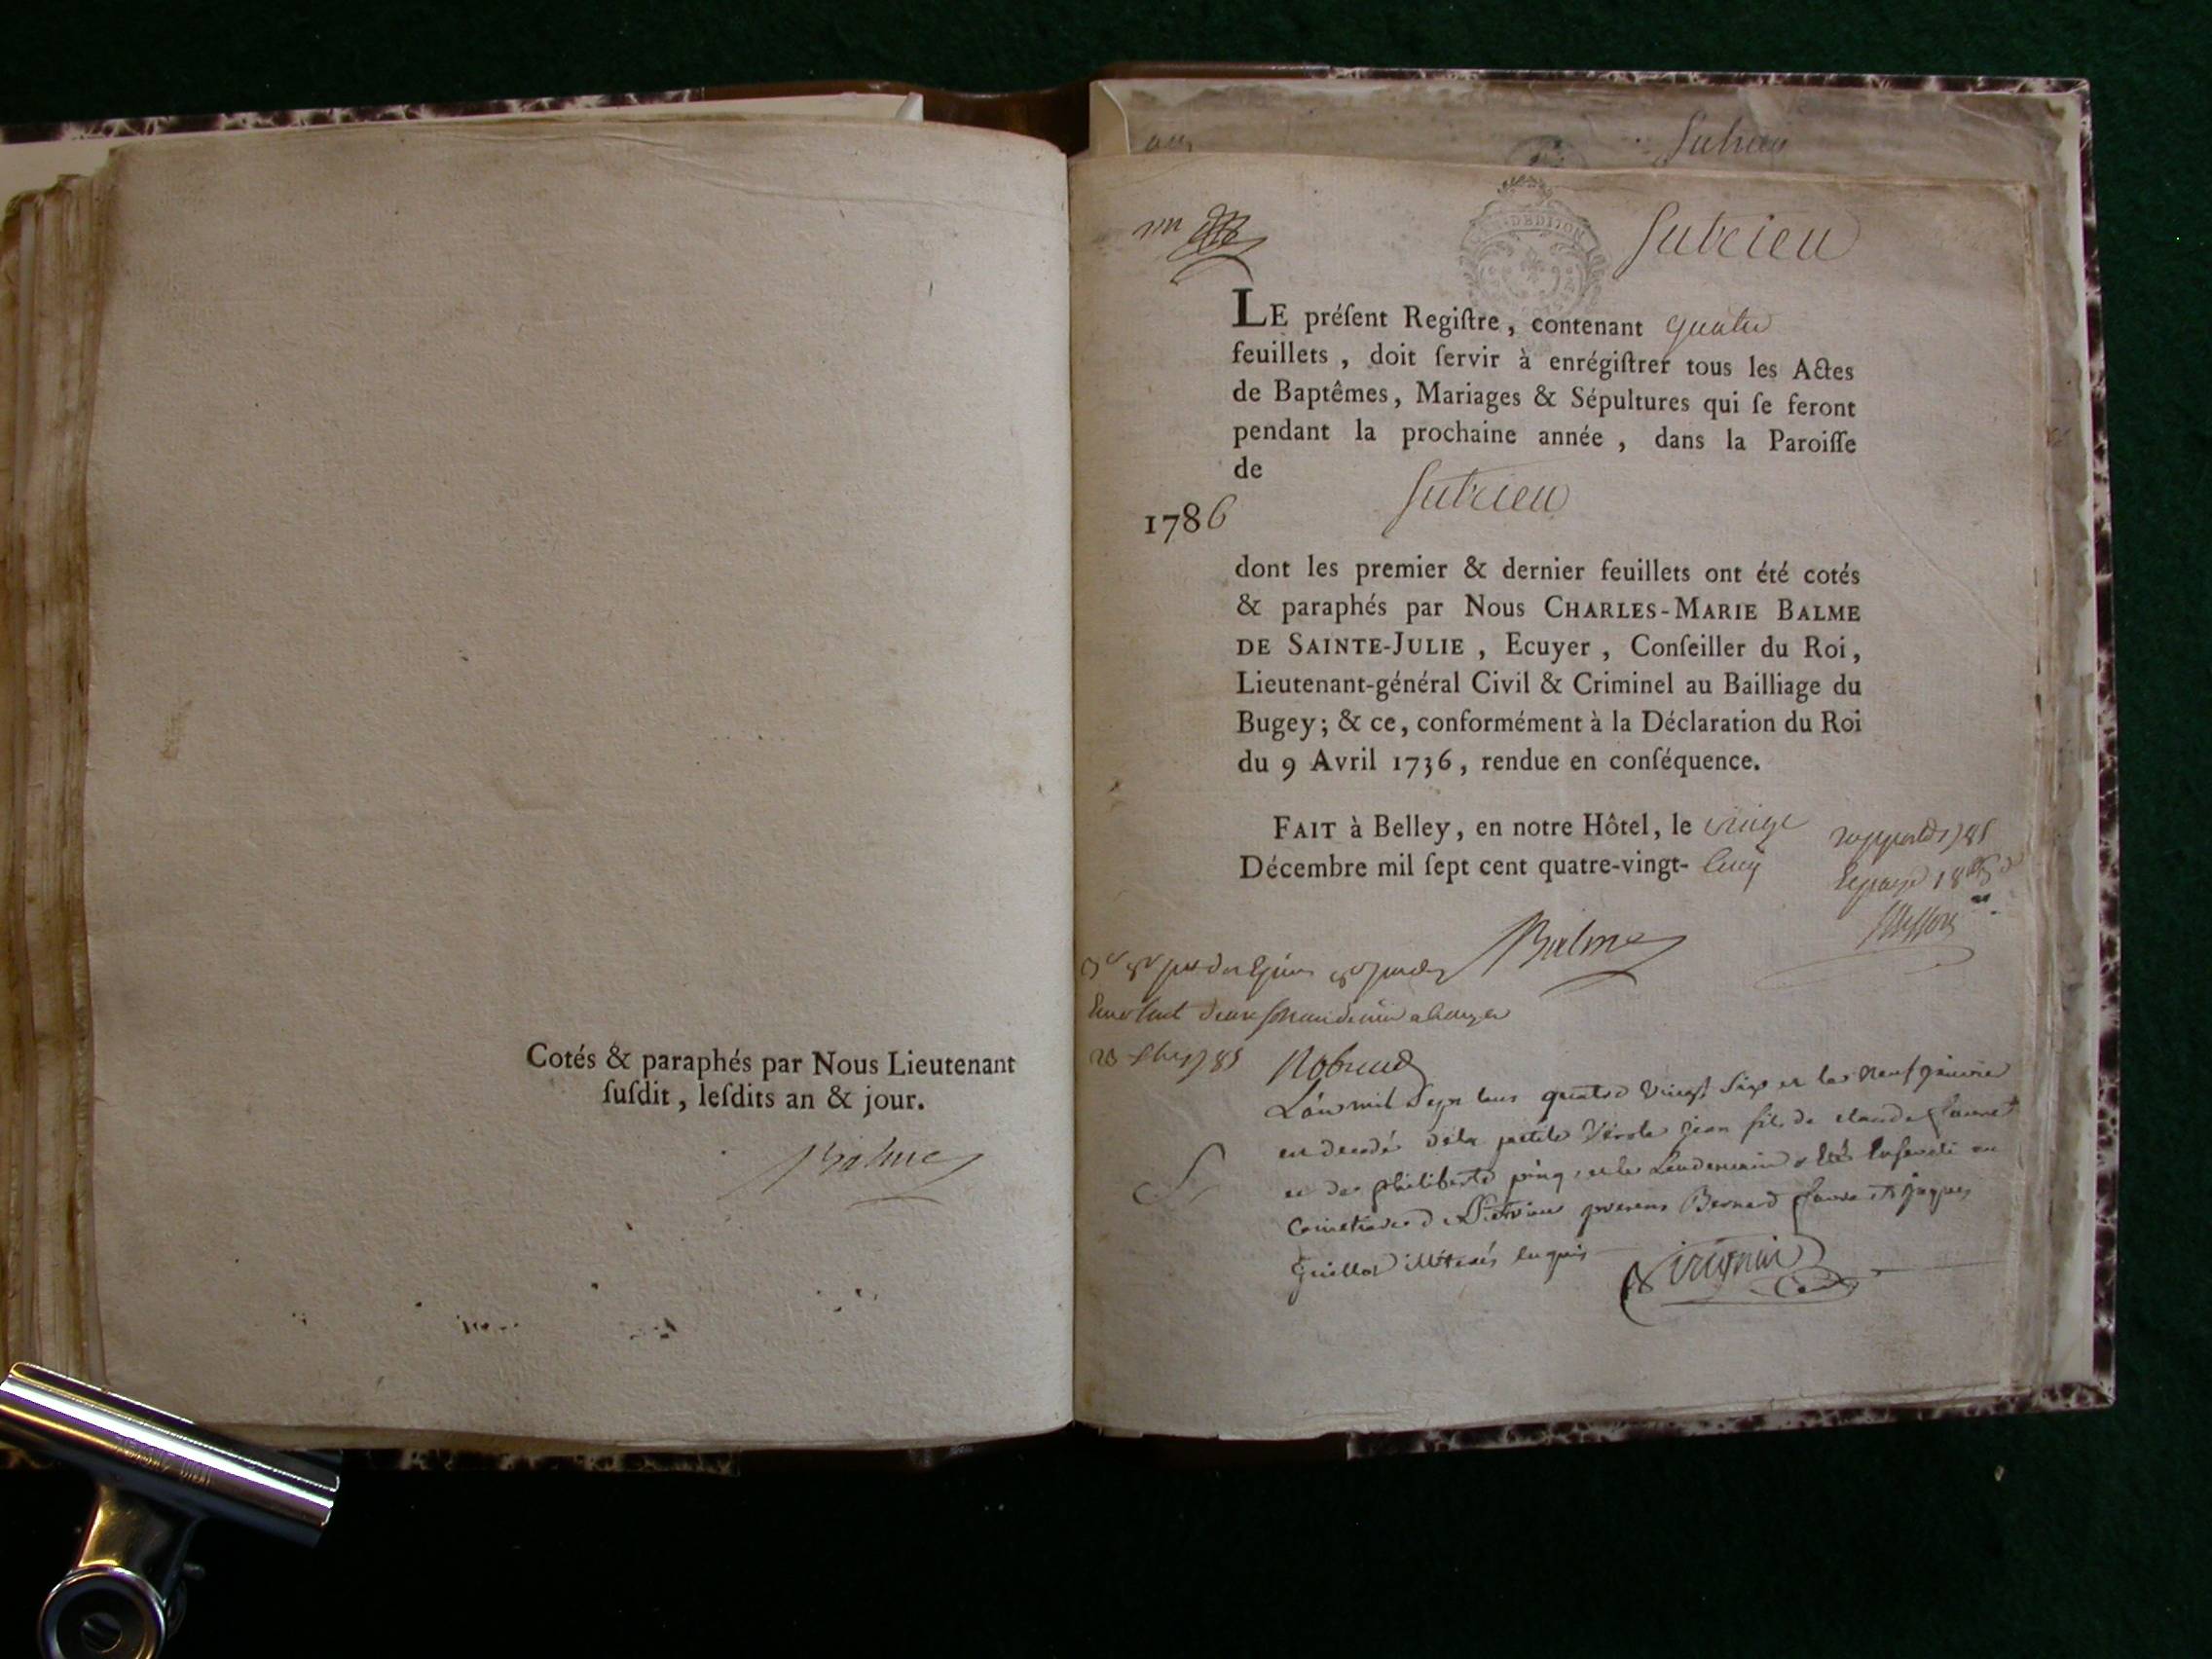 Cotés & paraphés par Nous Lieutenant
ſuſdit, leſdits an & jour.
Balme
Sutrieu
Sutrieu
LE préſent Regiſtre, contenant quatre
feuillets, doit ſervir à enrégiſtrer tous les Actes
de Baptêmes, Mariages & Sépultures qui ſe feront
pendant la prochaine année, dans la Paroiſſe
de
Sutrieu
1786
dont les premier & dernier feuillets ont été cotés
& paraphés par Nous CHARLES-MARIE BALME
DE SAINTE-JULIE, Ecuyer, Conſeiller du Roi,
Lieutenant-général Civil & Criminel au Bailliage du
Bugey; & ce, conformément à la Déclaration du Roi
du 9 Avril 1736, rendue en conſéquence.
FAIT à Belley, en notre Hôtel, le vingt
Décembre mil ſept cent quatre-vingt- cinq
Balme
L'an mil Sept Cens quatre Vingt Six et le neuf janvier
est decedé de la petite Verole jean fils de claude
et de philiberte et le Lendemain a été Enseveli au
Cimetiere de Sutrieu presens Bernard et jaques
Guillot illiterés Enquis